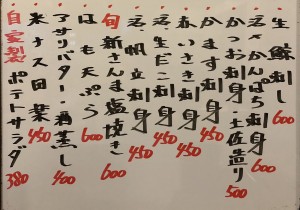 生鯨刺し 600
活〆かんぱち刺身 600
かつお刺身 土佐造り 500
かます刺身 450
赤いさき刺身 450
活、生だこ刺身 450
活、帆立刺身 450
旬 新さんま塩焼き 600
はも天ぷら 600
アサリバター・酒蒸し 400
米ナス田楽 450
自家製ポテトサラダ 380